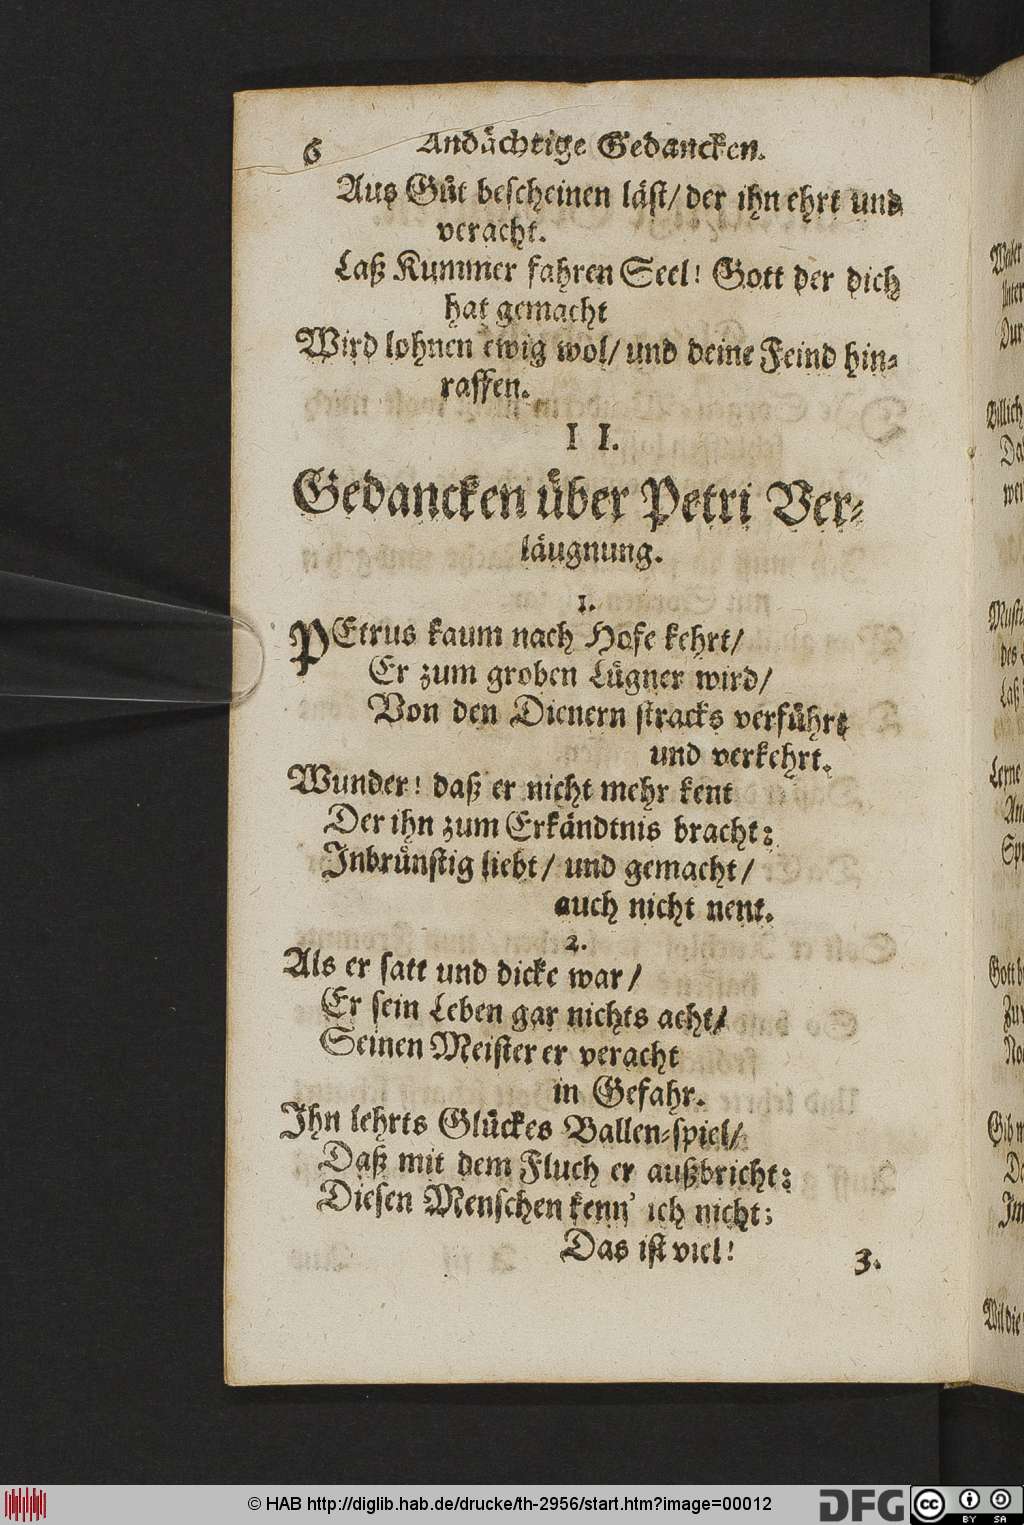 6 Andächtige Gedancken.
Aus Güt bescheinen läst/ der ihn ehrt und
veracht.
Laß Kummer fahren Seel! Gott der dich
hat gemacht
Wird lohnen ewig wol/ und deine Feind hin-
raffen.
II.
Gedancken über Petri Ver-
läugnung.
1.
PEtrus kaum nach Hofe kehrt/
Er zum groben Lügner wird/
Von den Dienern stracks verführt
und verkehrt.
Wunder! daß er nicht mehr kent
Der ihn zum Erkändtnis bracht;
Inbrünstig liebt/ und gemacht/
auch nicht nent.
2.
Als er satt und dicke war/
Er sein Leben gar nichts acht/
Seinen Meister er veracht
in Gefahr.
Ihn lehrts Glückes Ballen-spiel/
Daß mit dem Fluch er außbricht;
Diesen Menschen kenn' ich nicht;
Das ist viel!
3.
© HAB http://diglib.hab.de/drucke/th-2956/start.htm?image=00012
DFG
cc
BY SA